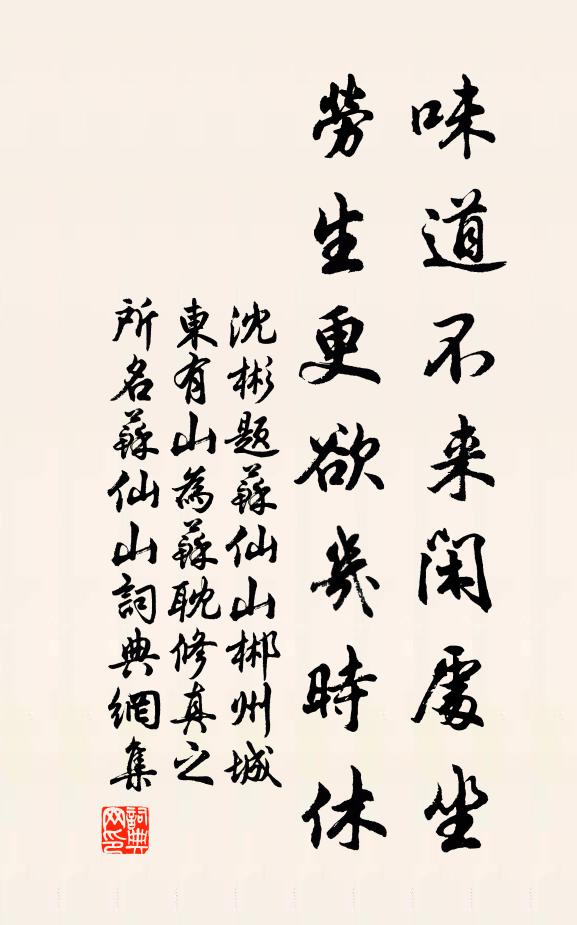 味道不来閑處坐
勞生更欲幾時休
沈彬题蘇仙山郴州城
東有山為蘇耽修真之
所名蘇仙山詞典網集
詞典网印